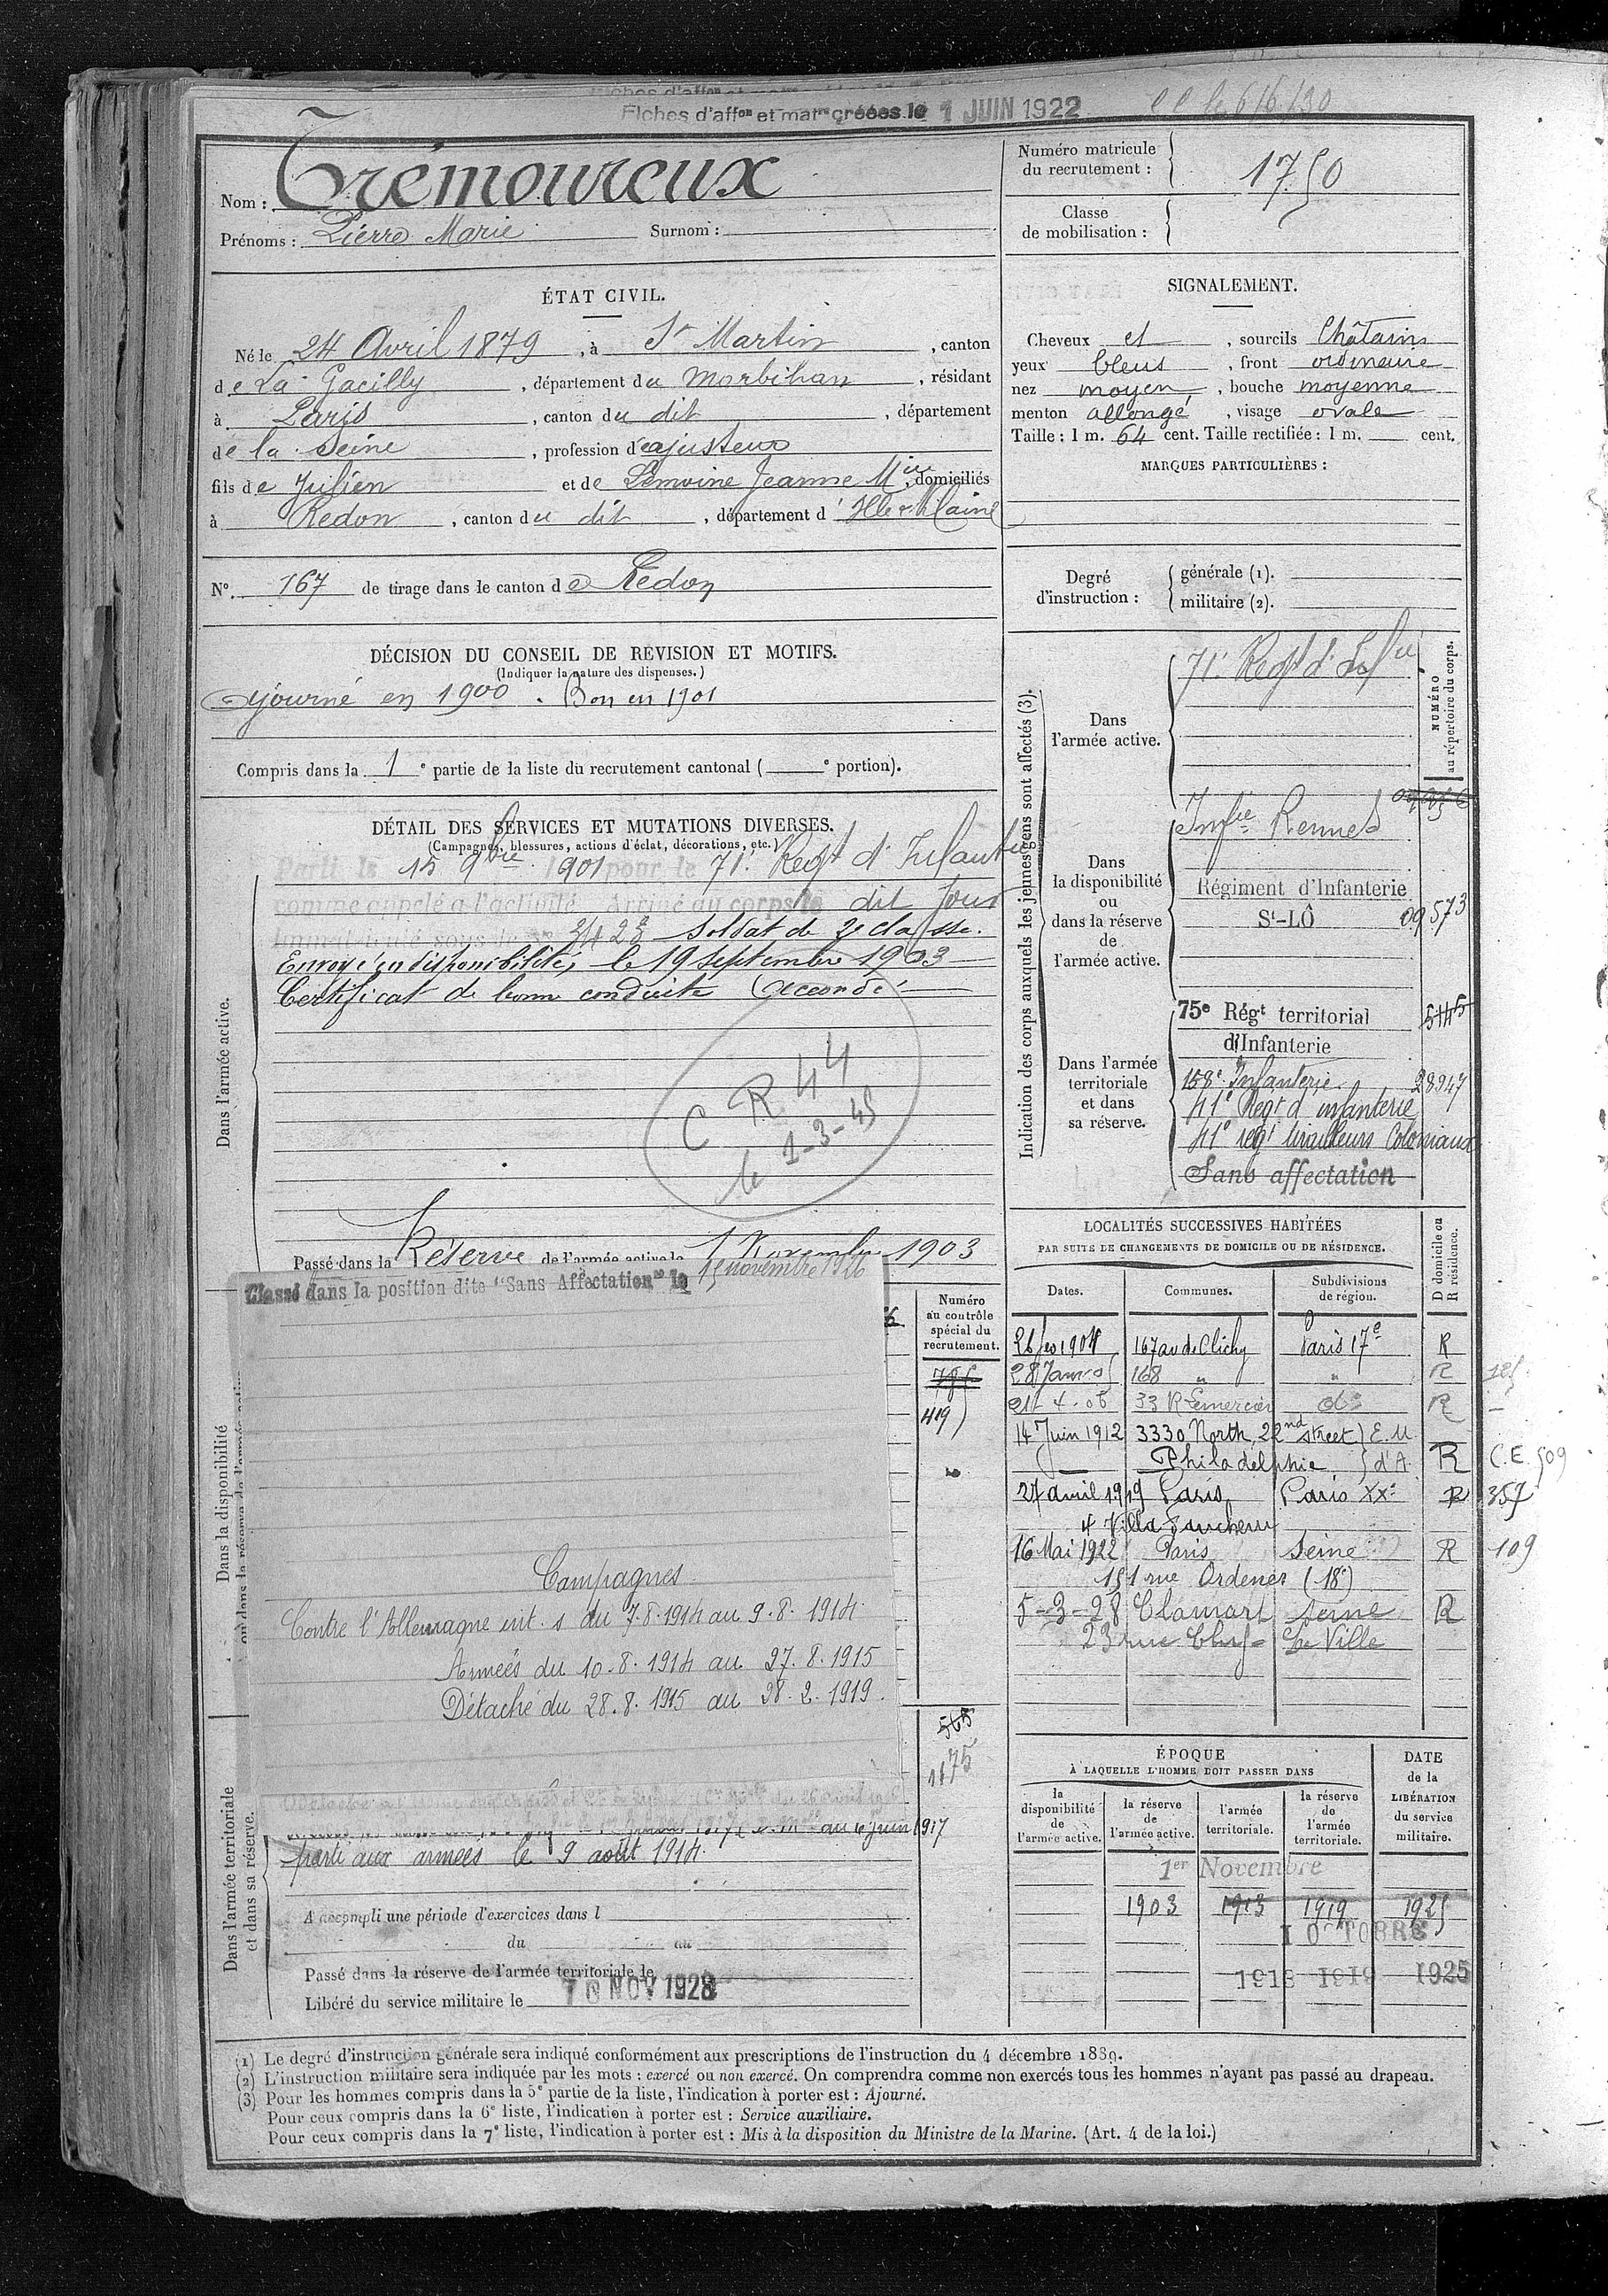 Fiches d'affon et matre créées le 1 JUIN 1922
Nom : Trémoureux
Prénoms : Pierre Marie Surnom :
Numéro matricule
du recrutement : 1750
Classe
de mobilisation :
ÉTAT CIVIL.
Né le 24 Avril 1879, à St Martin, canton
de La Gacilly, département du Morbihan, résidant
à Paris, canton du dit, département
de la Seine, profession d'ajusteur
fils de Julien et de Lemoine Jeanne Mie, domiciliés
à Redon, canton du dit, département d'Ille & Vilaine
SIGNALEMENT.
Cheveux et, sourcils Châtains
yeux bleus, front ordinaire
nez moyen, bouche moyenne
menton allongé, visage ovale
Taille : 1 m. 64 cent. Taille rectifiée : 1 m. cent.
MARQUES PARTICULIÈRES :
No. 167 de tirage dans le canton de Redon
Degré
d'instruction :
générale (1).
militaire (2).
DÉCISION DU CONSEIL DE REVISION ET MOTIFS.
(Indiquer la nature des dispenses.)
Ajourné en 1900. Bon en 1901
Compris dans la 1e partie de la liste du recrutement cantonal ( e portion).
DÉTAIL DES SERVICES ET MUTATIONS DIVERSES.
(Campagnes, blessures, actions d'éclat, décorations, etc.)
Dans l'armée active.
Parti le 15 9bre 1901 pour le 71e Regt d'Infanterie
comme appelé à l'activité Arrivé au corps le dit jour
Immatriculé sous le no soldat de 2e classe.
Envoyé en disponibilité, le 19 Septembre 1903
Certificat de bonne conduite Accordé
C R 44
le 1-3-45
Passé dans la Réserve de l'armée active le 1 Novembre 1903
Classé dans la position dite "Sans Affectation" le 15 novembre 1926
Dans la disponibilité
ou dans la réserve de l'armée active.
Numéro
au contrôle
spécial du
recrutement.
419
Campagnes
Contre l'Allemagne int. s du 7.8.1914 au 9.8.1914
Armées du 10.8.1914 au 27.8.1915
Détaché du 28.8.1915 au 28.2.1919.
565
1175
Dans l'armée territoriale
et dans sa réserve.
au 1er juin 1917
parti aux armées le 9 août 1914.
A accompli une période d'exercices dans l
du au
Passé dans la réserve de l'armée territoriale le
Libéré du service militaire le 10 NOV 1928
Indication des corps auxquels les jeunes gens sont affectés (3).
NUMÉRO
au répertoire du corps.
Dans
l'armée active.
71e Regt d'Infie
Dans
la disponibilité
ou
dans la réserve
de
l'armée active.
Infie Rennes
Régiment d'Infanterie
St-LÔ 09573
Dans l'armée
territoriale
et dans
sa réserve.
75e Régt territorial 5145
d'Infanterie
158e Infanterie 28947
41e Regt d'infanterie
41e regt tirailleurs Coloniaux
Sans affectation
LOCALITÉS SUCCESSIVES HABITÉES
PAR SUITE DE CHANGEMENTS DE DOMICILE OU DE RÉSIDENCE.
D domicile ou
R résidence.
Dates. Communes. Subdivisions
de région.
26 fev 1904 167 av de Clichy Paris 17e R
168 " " R
33 R Lemercier R
14 Juin 1912 3330 North, 22nd street E.U.
Philadelphie d'A. R C.E. 509
27 avril 1919 Paris Paris XXe R 357
4 Villa Faucheur
16 Mai 1922 Paris Seine R 109
151 rue Ordener (18e)
5-3-28 Clamart Seine R
23 rue Chef de Ville
ÉPOQUE
À LAQUELLE L'HOMME DOIT PASSER DANS
DATE
de la
LIBÉRATION
du service
militaire.
la
disponibilité
de
l'armée active.
la réserve
de
l'armée active.
l'armée
territoriale.
la réserve
de
l'armée
territoriale.
1er Novembre
1903 1913 1919 1925
1 OCTOBRE
1913 1919 1925
(1) Le degré d'instruction générale sera indiqué conformément aux prescriptions de l'instruction du 4 décembre 1889.
(2) L'instruction militaire sera indiquée par les mots : exercé ou non exercé. On comprendra comme non exercés tous les hommes n'ayant pas passé au drapeau.
(3) Pour les hommes compris dans la 5e partie de la liste, l'indication à porter est : Ajourné.
Pour ceux compris dans la 6e liste, l'indication à porter est : Service auxiliaire.
Pour ceux compris dans la 7e liste, l'indication à porter est : Mis à la disposition du Ministre de la Marine. (Art. 4 de la loi.)